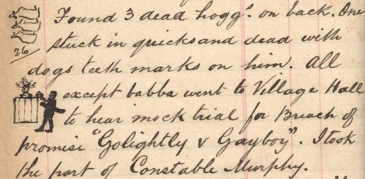 Found 3 dead hoggs. on back. One
stuck in quicksand dead with
26
dogs teeth marks on him. All
except babba went to Village Hall
to hear mock trial for Breach of
promise "Golightly v Gayboy". I took
the part of Constable Murphy.